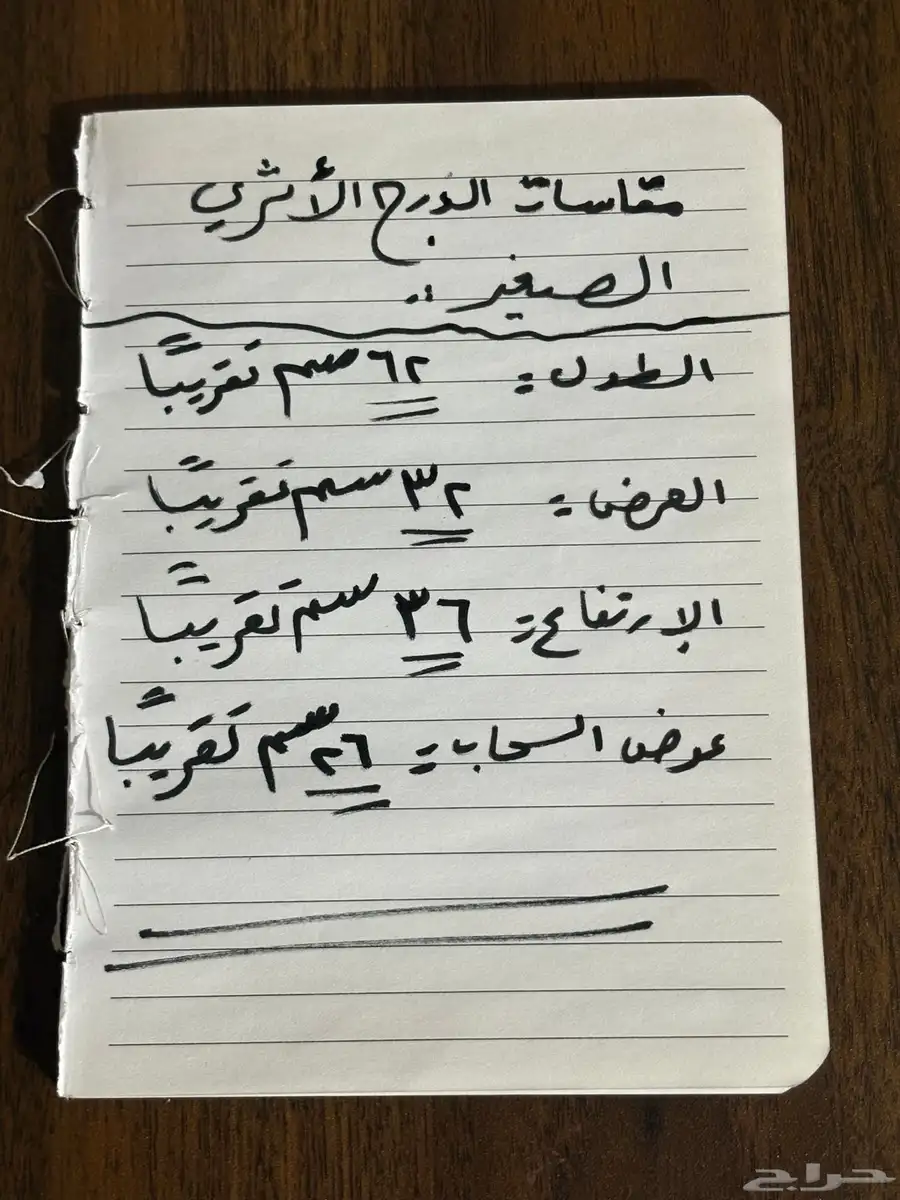 مقاسات الدرج الأثري
الصغير ..
الطول:- ٦٢ سم تقريبًا
العرض:- ٣٢ سم تقريبًا
الإرتفاع:- ٣٦ سم تقريبًا
عرض السحاب:- ٢٦ سم تقريبًا
حراج